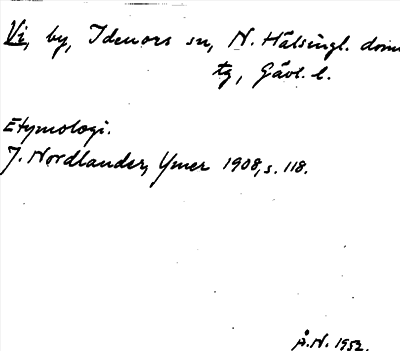 Vi, by, Idenors sn, N. Hälsingl. doms
tg, Gävl. l.
Etymologi.
J. Nordlander, Ymer 1908, s. 118.
Å.N. 1952.